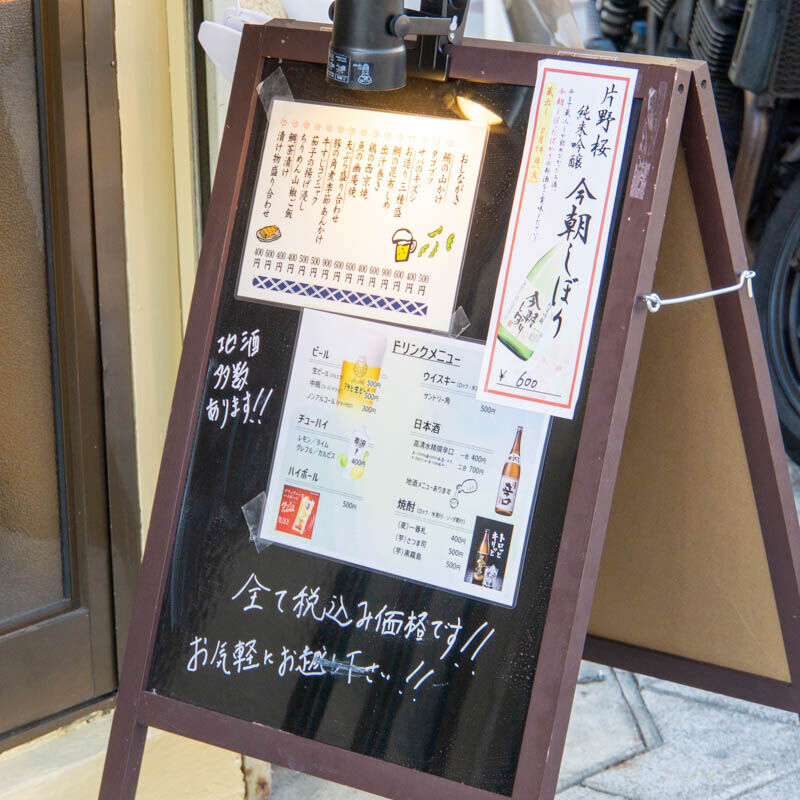 おしながき
鮪の山かけ
タコブツ
サバのキズシ
お造り三種盛
鯛の昆布じめ
出汁巻き
鶏の西京焼
魚の幽庵焼
天ぷら盛り合わせ
豚の角煮季節あんかけ
牛すじコンニャク
茄子の揚げ浸し
ちりめん山椒ご飯
鯛茶漬け
漬け物盛り合わせ
500円
400円
500円
900円
600円
400円
600円
600円
900円
500円
500円
400円
400円
600円
400円
片野桜
純米吟醸
今朝しぼり
蔵出し
¥600
地酒
多数
あります!!
ドリンクメニュー
ビール
生ビール
500円
中瓶
500円
ノンアルコール
300円
チューハイ
レモン/ライム
グレフル/カルピス
400円
ハイボール
500円
ウイスキー
サントリー角
500円
日本酒
高清水精撰辛口
一合 400円
二合 700円
地酒メニューあります
焼酎
(麦)一番札 400円
(芋)さつま司 500円
(芋)黒霧島 500円
辛口
トロッと
キリッと
全て税込み価格です!!
お気軽にお越し下さい!!